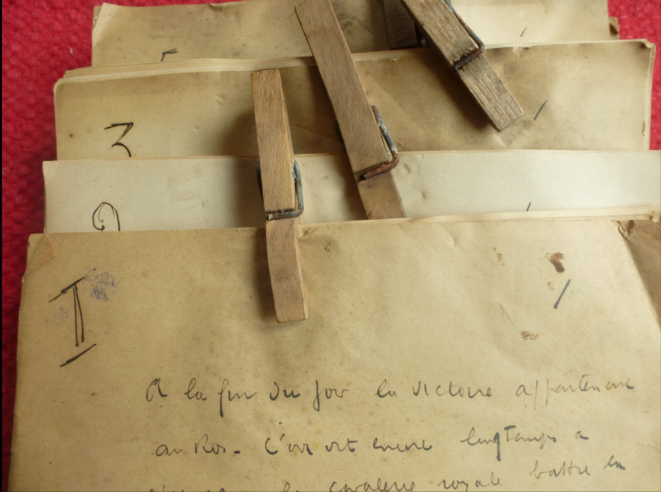 5
3
2
I
A la fin du jour la victoire appartenait
au Roi. C'on vit encore longtemps a
la cavalerie royale battre en